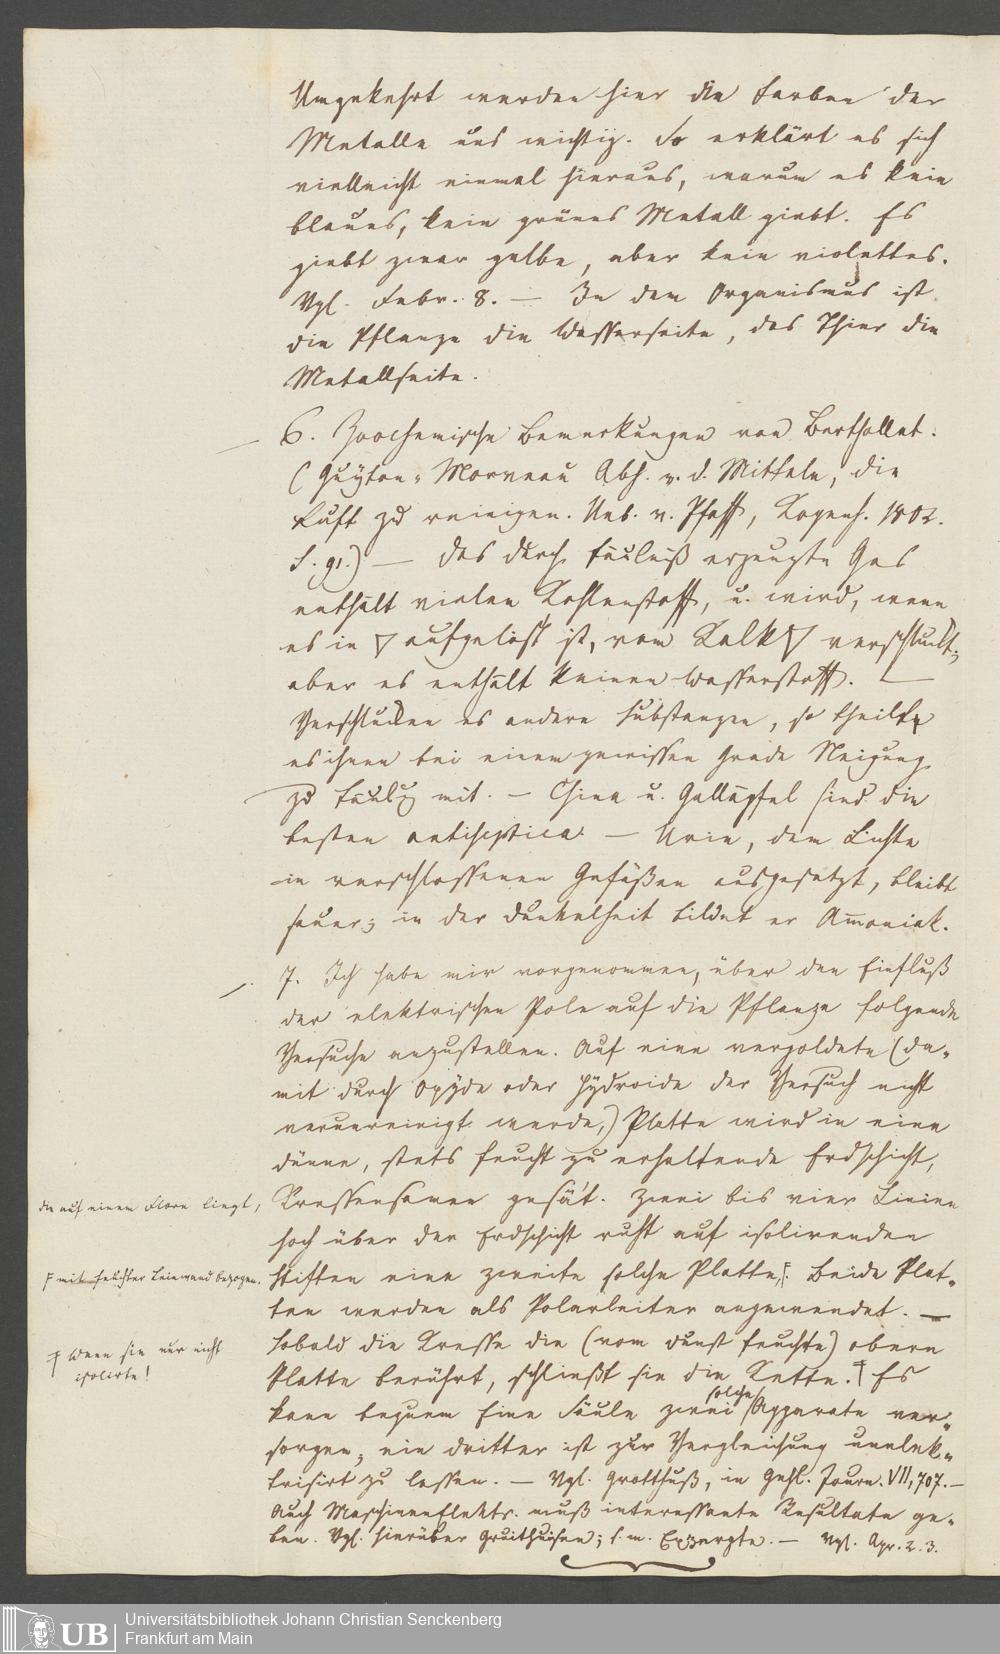 Umgekehrt werden hier die Farben der
Metalle uns wichtig. So erklärt es sich
vielleicht einmal hieraus, warum es kein
blaues, kein grünes Metall giebt. Es
giebt zwar gelbe, aber kein violettes.
Vgl. Febr. 8. — In dem Organismus ist
die Pflanze die Wasserseite, das Thier die
Metallseite.
6. Zoochemische Bemerkungen von Berthollet.
(Guyton-Morveau Abh. v. d. Mitteln, die
Luft zu reinigen. Ueb. v. Pfaff, Kopenh. 1802.
S. 91.) — Das durch Fäulniß erzeugte Gas
enthält vielen Kohlenstoff, u. wird, wenn
es in ▽ aufgelöst ist, vom Kalk▽ verschluckt;
aber es enthält keinen Wasserstoff. —
Verschlucken es andere Substanzen, so theilt
es ihnen bei einem gewissen Grade Neigung
zu mit. — China u. Galläpfel sind die
besten antiseptica. — Urin, dem Lichte
in verschlossenen Gefäßen ausgesetzt, bleibt
sauer; in der Dunkelheit bildet er Am̅oniak.
7. Ich habe mir vorgenommen, über den Einfluß
der elektrischen Pole auf die Pflanze folgende
Versuche anzustellen. Auf eine vergoldete (da-
mit durch Oxyde oder Hydroide der Versuch nicht
verunreinigt werde,) Platte wird in eine
dünne, stets feucht zu erhaltende Erdschicht,
die auf einem Flore liegt,
Kressensamen gesä't. Zwei bis vier Linien
hoch über der Erdschicht ruht auf isolirenden
Stiften eine zweite solche Platte,. Beide Plat-
mit feuchter Leinwand bezogen.
ten werden als Polarleiter angewendet. —
Sobald die Kresse die (vom Dunst feuchte) obere
Platte berührt, schließt sie die Kette. Es
Wenn sie nur nicht
isolirte!
kann bequem Eine Säule zwei solche Apparate ver-
sorgen; ein dritter ist zur Vergleichung unelek-
trisirt zu lassen. — Vgl. Grotthuß, in Gehl. Journ. VII, 707. —
Auch Maschinenelektr. muß interessante Resultate ge-
ben. Vgl. hierüber Gruithuisen; s. m. Exzerpte. — Vgl. Apr. 2. 3.
UB
Universitätsbibliothek Johann Christian Senckenberg
Frankfurt am Main